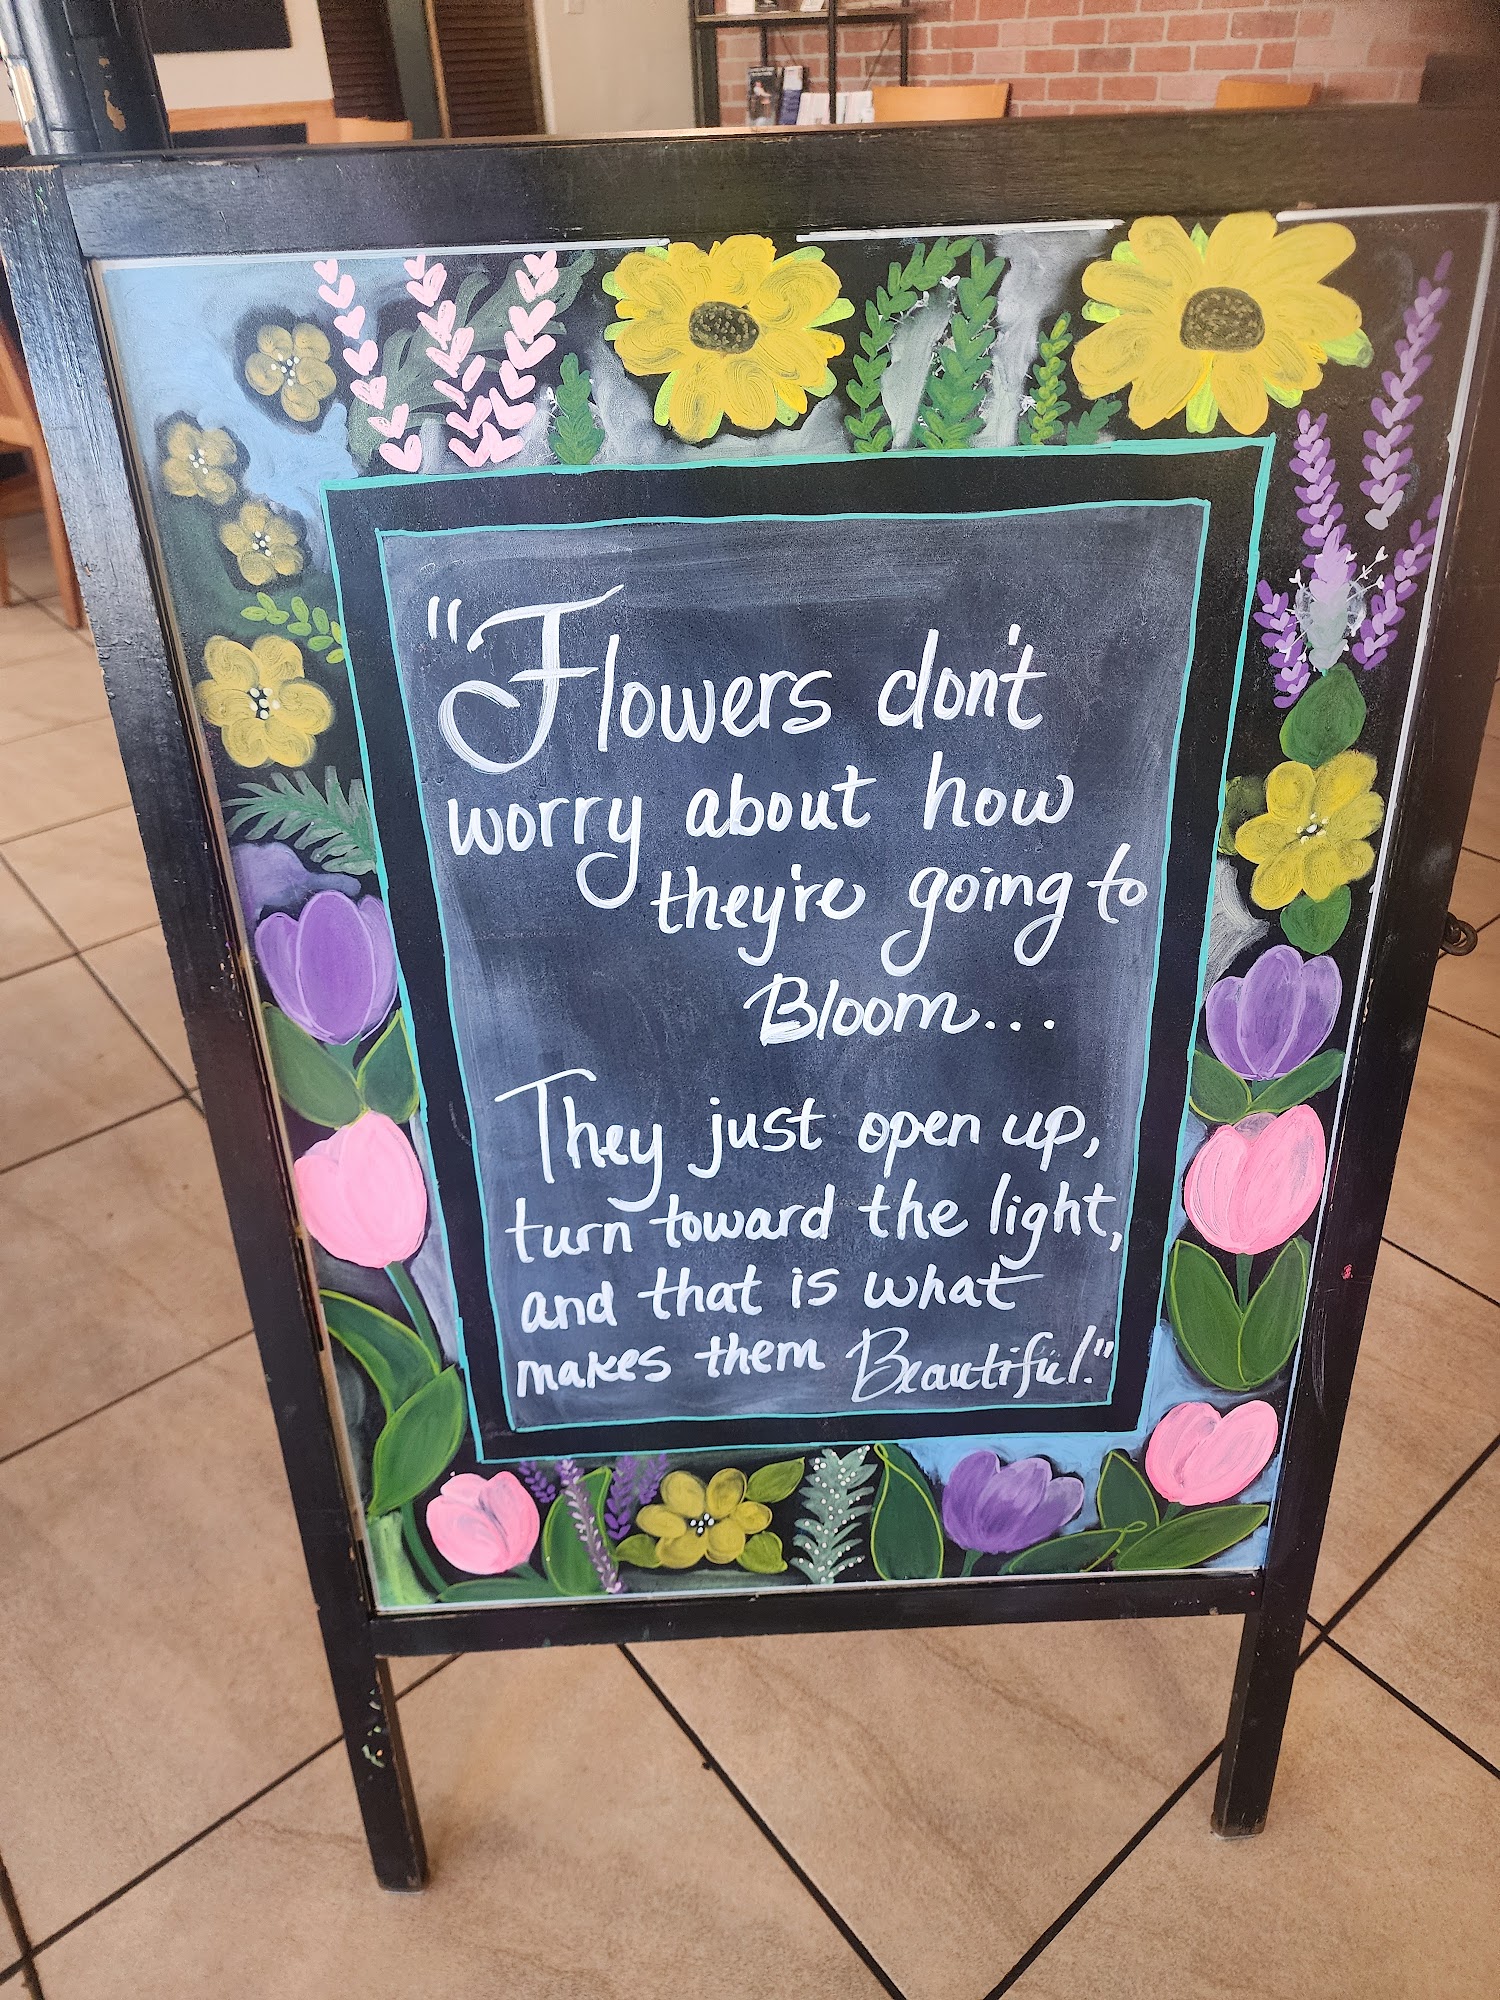 "Flowers don't
worry about how
they're going to
Bloom...
They just open up,
turn toward the light,
and that is what
makes them Beautiful."